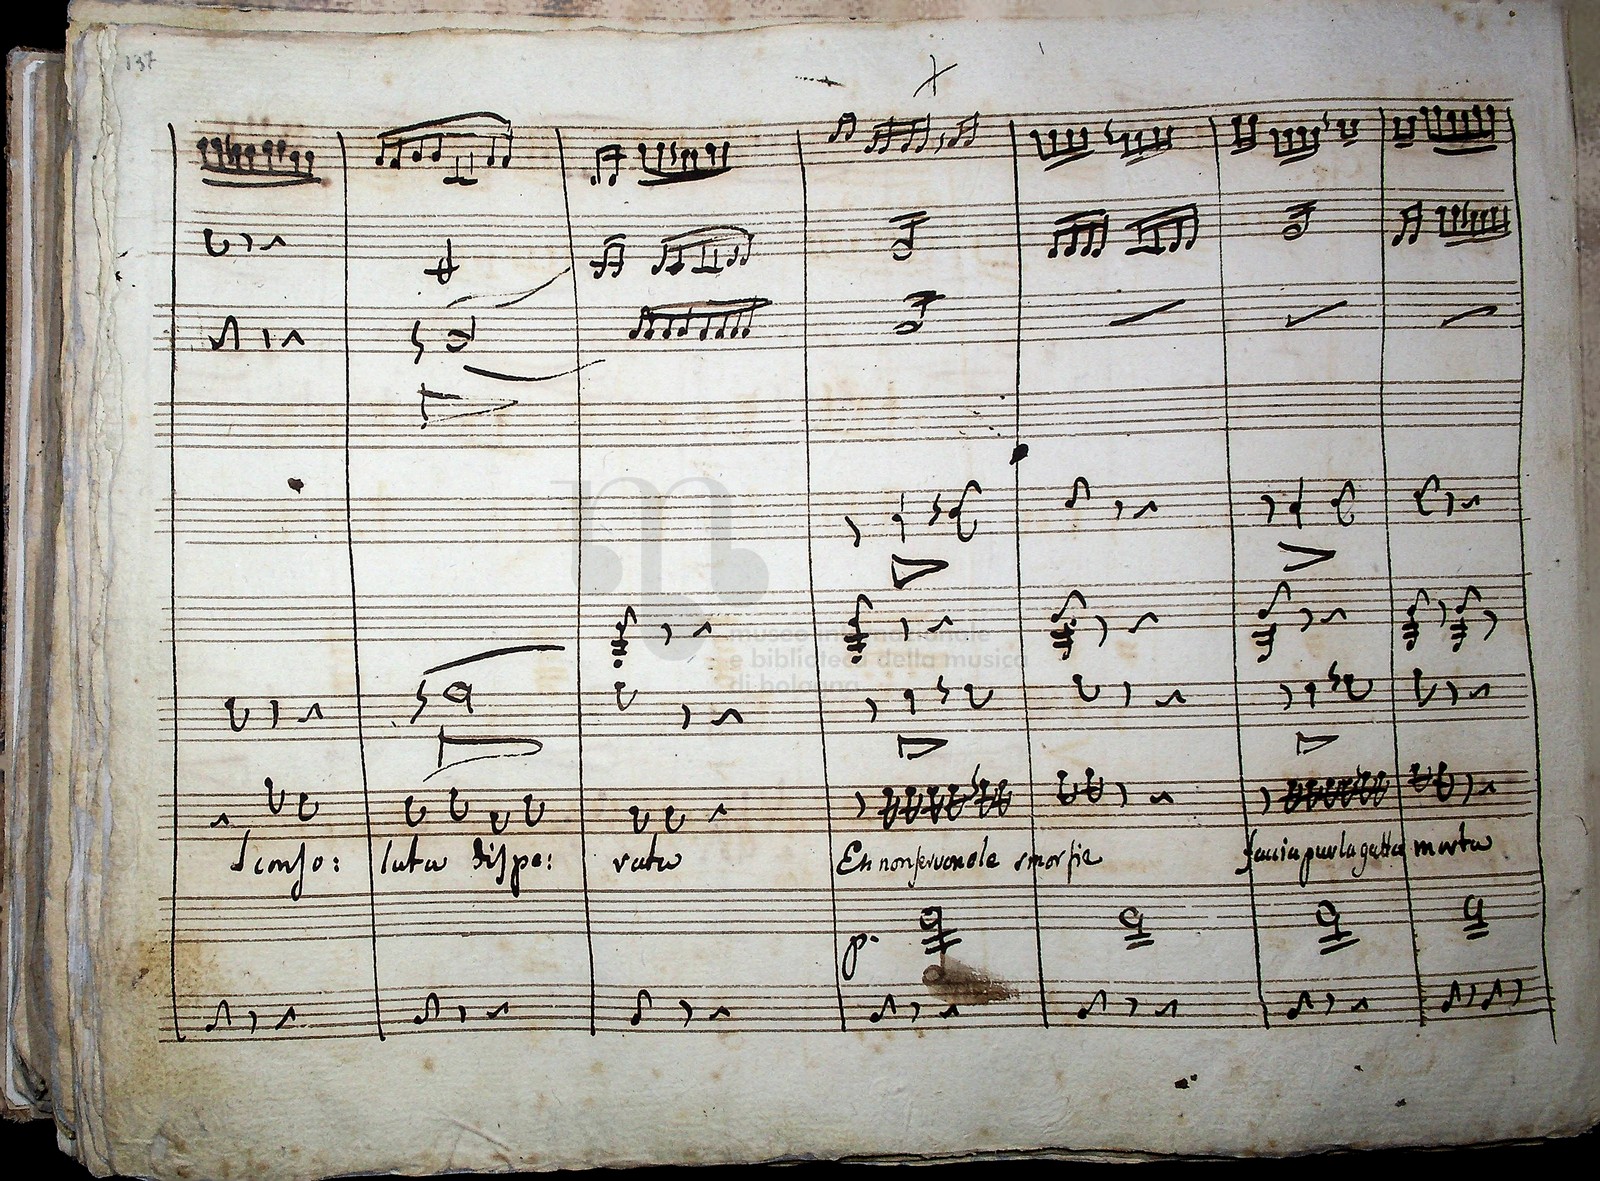 137
museo internazionale
e biblioteca della musica
di bologna
Sconso: lata dispe: rata Eh non servon le smorfie faccia pur la gatta morta
p.